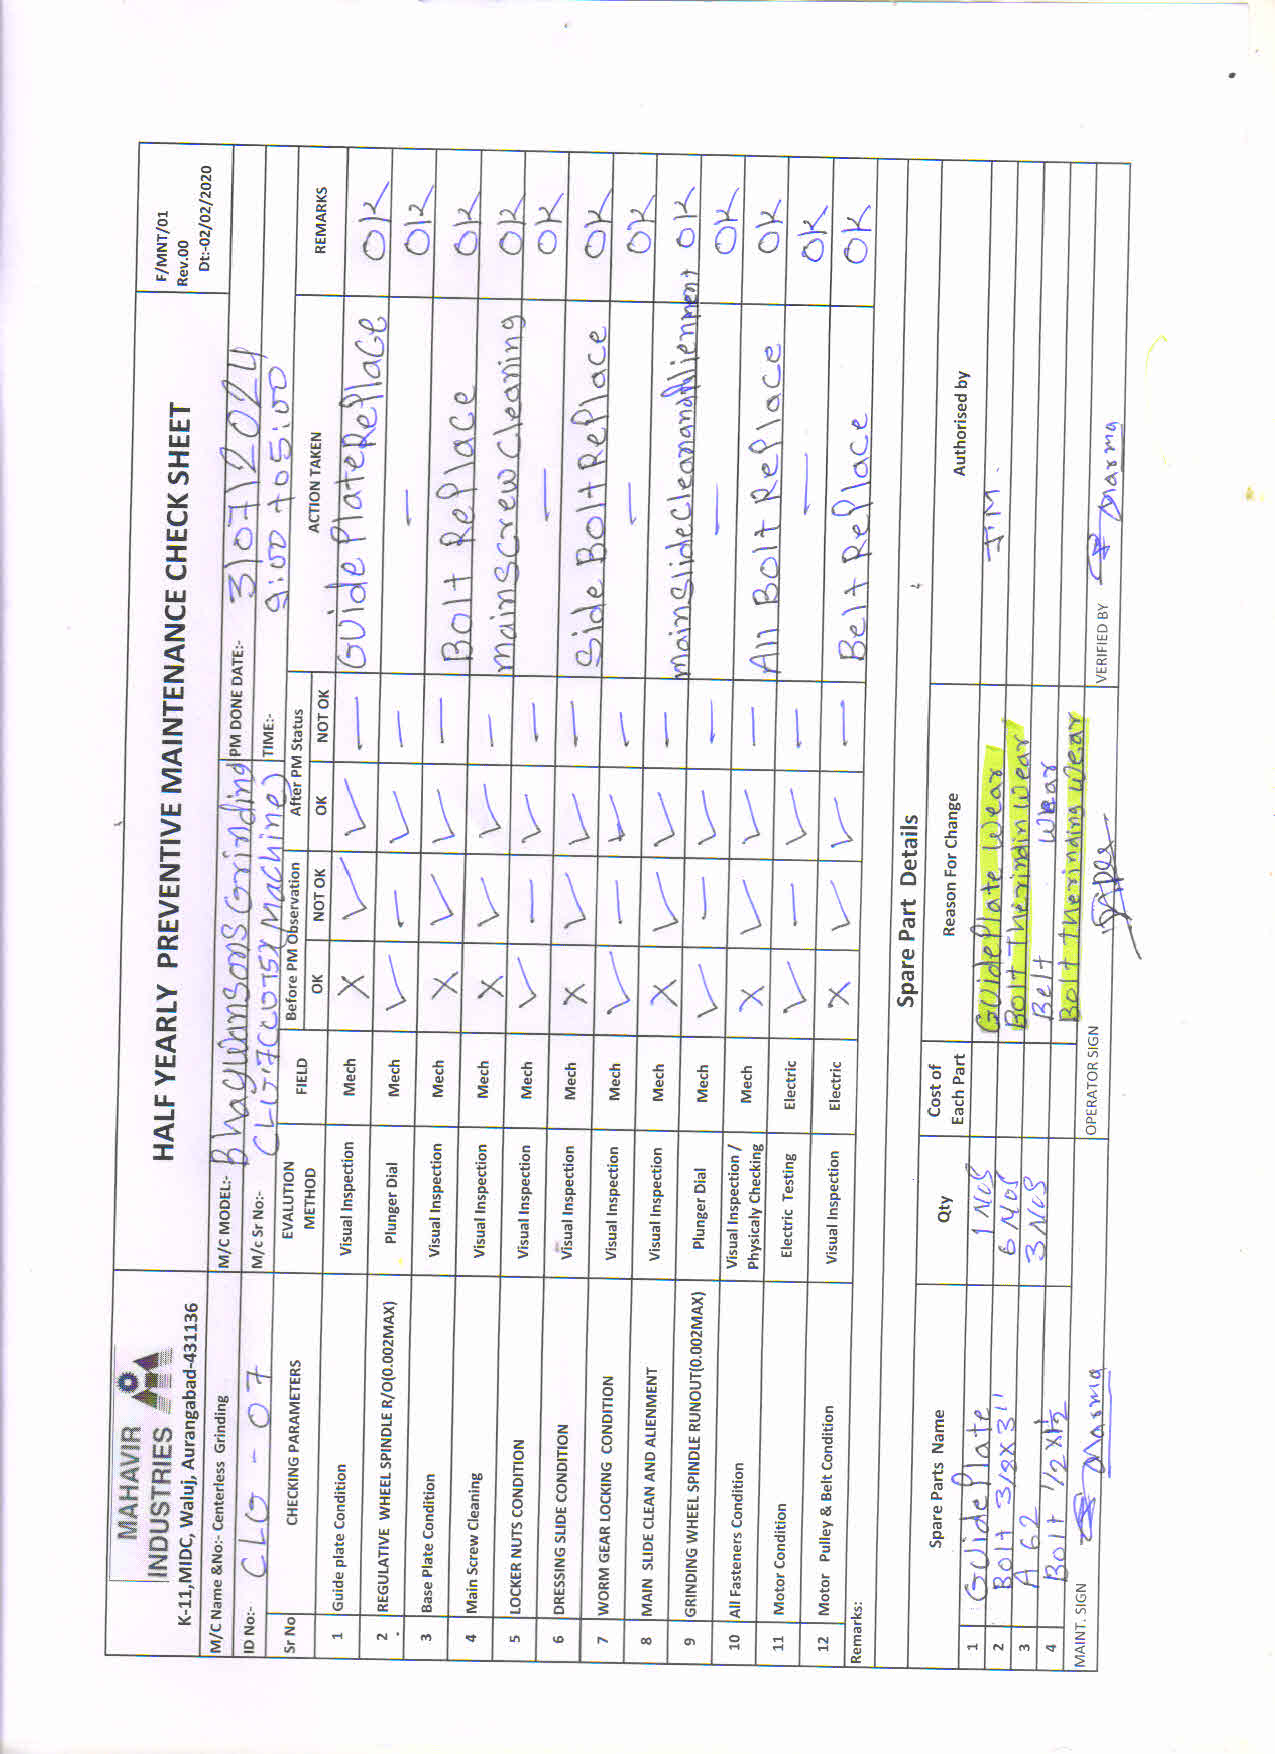 MAHAVIR
INDUSTRIES
K-11,MIDC, Waluj, Aurangabad-431136
HALF YEARLY PREVENTIVE MAINTENANCE CHECK SHEET
F/MNT/01
Rev.00
Dt:-02/02/2020
M/C Name &No:- Centerless Grinding
M/C MODEL:- Bhagwansons Grinding
PM DONE DATE:- 310712024
ID No:- CLG - 07
M/c Sr No:- Machine)
TIME:- 9:00 to 5:00
Sr No CHECKING PARAMETERS EVALUTION METHOD FIELD Before PM Observation OK NOT OK After PM Status OK NOT OK ACTION TAKEN REMARKS
1 Guide plate Condition Visual Inspection Mech X ✓ ✓ — GUide Plate RePlace OK
2 REGULATIVE WHEEL SPINDLE R/O(0.002MAX) Plunger Dial Mech ✓ — ✓ — — OK
3 Base Plate Condition Visual Inspection Mech X ✓ ✓ — Bolt RePlace OK
4 Main Screw Cleaning Visual Inspection Mech X ✓ ✓ — main screw cleaning OK
5 LOCKER NUTS CONDITION Visual Inspection Mech ✓ — ✓ — — OK
6 DRESSING SLIDE CONDITION Visual Inspection Mech X ✓ ✓ — Side Bolt RePlace OK
7 WORM GEAR LOCKING CONDITION Visual Inspection Mech ✓ — ✓ — — OK
8 MAIN SLIDE CLEAN AND ALIENMENT Visual Inspection Mech X ✓ ✓ — main slide clean and Alienment OK
9 GRINDING WHEEL SPINDLE RUNOUT(0.002MAX) Plunger Dial Mech ✓ — ✓ — — OK
10 All Fasteners Condition Visual Inspection / Physicaly Checking Mech X ✓ ✓ — All Bolt RePlace OK
11 Motor Condition Electric Testing Electric ✓ — ✓ — — OK
12 Motor Pulley & Belt Condition Visual Inspection Electric X ✓ ✓ — Belt RePlace OK
Remarks:
Spare Part Details
Spare Parts Name Qty Cost of Each Part Reason For Change Authorised by
1 GUide Plate 1 NOS GUide Plate Wear
2 Bolt 3/8 X 3" 6 NOS Bolt Thering Wear
3 A 62 3 NOS Belt Wear
4 Bolt 1/2 X 1½ Bolt Thering Wear
MAINT. SIGN
OPERATOR SIGN
VERIFIED BY